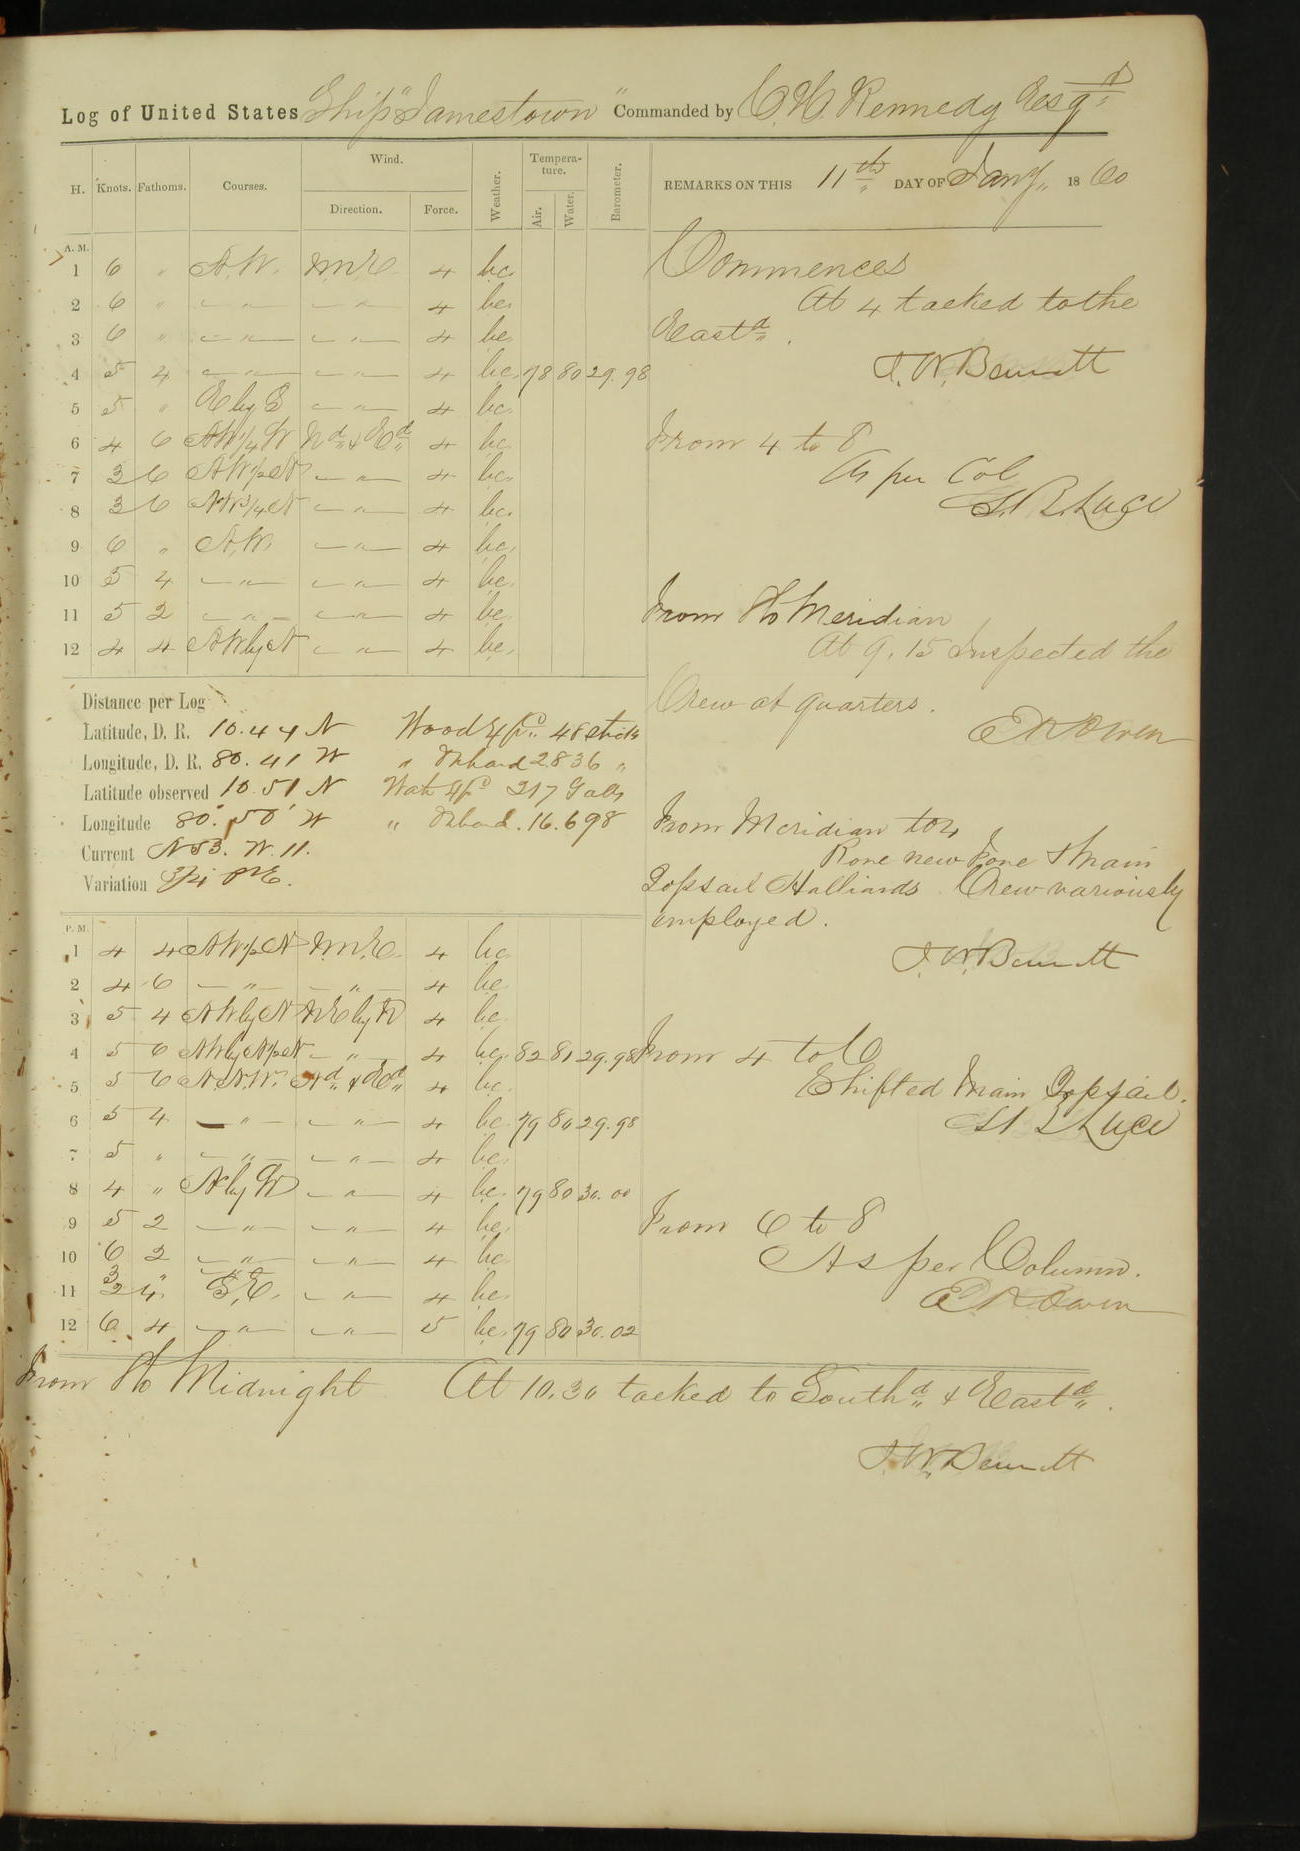 Log of United States Ship "Jamestown" Commanded by C. H. Kennedy Esqr
H. Knots. Fathoms. Courses. Wind. Direction. Force. Weather. Tempera-ture. Air. Water. Barometer.
REMARKS ON THIS 11th DAY OF Jany 1860
A. M.
1 6 " N.W. N.N.E. 4 bc.
2 6 " — " — — " — 4 bc.
3 6 " — " — — " — 4 bc.
4 5 4 — " — — " — 4 bc. 78 80 29.98
5 5 " E by S — " — 4 bc.
6 4 6 NW 1/4 W Nd & Ed 4 bc.
7 3 6 NW 1/2 N — " — 4 bc.
8 3 6 NW 3/4 N — " — 4 bc.
9 6 " N.W. — " — 4 bc.
10 5 4 — " — — " — 4 bc.
11 5 2 — " — — " — 4 bc.
12 4 4 NW by N — " — 4 bc.
Commences
At 4 tacked to the
Eastd.
J. W. Bennett
From 4 to 8
As per Col
S. B. Luce
From 8 to Meridian
At 9.15 Inspected the
Crew at quarters.
E K Owen
Distance per Log
Latitude, D. R. 10.44 N Wood Expd 48 sticks
Longitude, D. R. 80.41 W " Onboard 2836 "
Latitude observed 10.51 N Watr Expd 217 Galls
Longitude 80.50' W " Onboard. 16.698
Current N 53. W. 11.
Variation
From Meridian to 4
Rove new Fore & Main
Topsail Halliards. Crew variously
employed.
J. W. Bennett
P. M.
1 4 4 NW 1/2 N N.N.E. 4 bc.
2 4 6 — " — — " — 4 bc.
3 5 4 NW by N NE by N 4 bc.
4 5 6 NW by N 1/2 N — " — 4 bc. 82 81 29.98
5 5 6 N.N.W. Nd & Ed 4 bc.
6 5 4 — " — — " — 4 bc. 79 80 29.98
7 5 " — " — — " — 4 bc.
8 4 " N by W — " — 4 bc. 79 80 30.00
9 5 2 — " — — " — 4 bc.
10 6 2 — " — — " — 4 bc.
11 3 " 2 4 S.E. — " — 4 bc.
12 6 4 — " — — " — 5 bc. 79 80 30.02
From 4 to 6
Shifted Main Topsail.
S. B. Luce
From 6 to 8
As per Column.
E K Owen
From 8 to Midnight At 10.30 tacked to Southd & Eastd.
J. W. Bennett